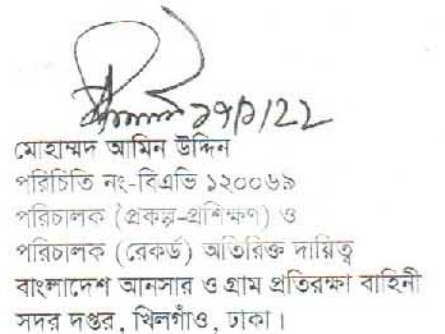 ২৭/১/22
মোহাম্মদ আমিন উদ্দিন
পরিচিতি নং-বিএভি ১২০০৬৯
পরিচালক (প্রকল্প-প্রশিক্ষণ) ও
পরিচালক (রেকর্ড) অতিরিক্ত দায়িত্ব
বাংলাদেশ আনসার ও গ্রাম প্রতিরক্ষা বাহিনী
সদর দপ্তর, খিলগাঁও, ঢাকা।